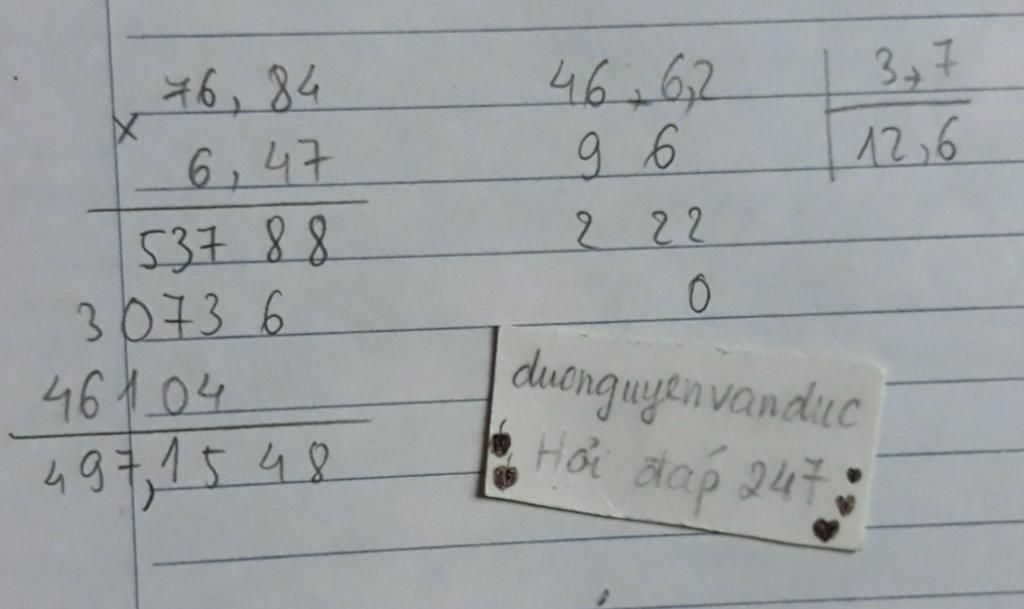 76,84
×
6,47
53788
30736
46104
497,1548
46,6,2
3,7
9 6
12,6
2 22
0
duonguyenvanduc
Hỏi đáp 247